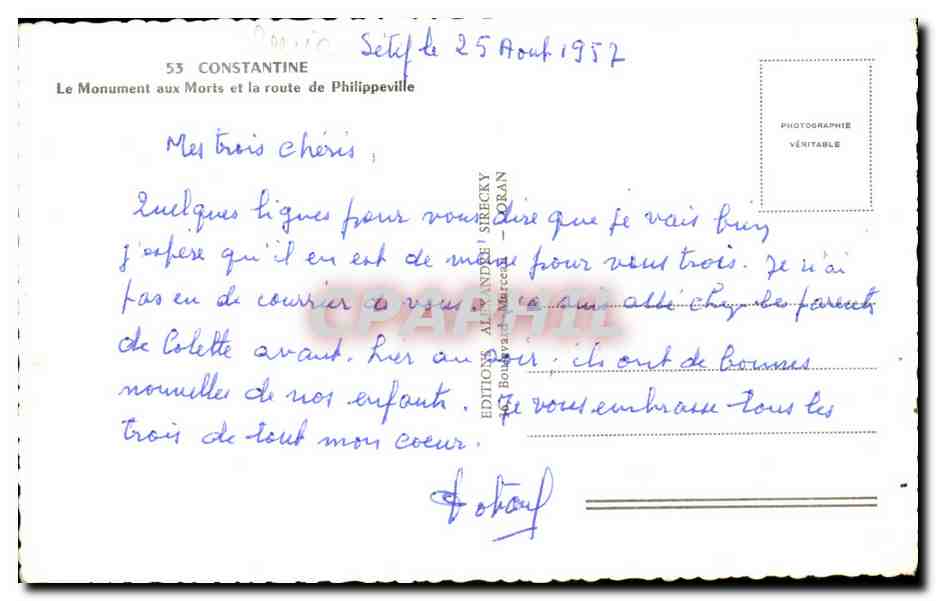 Sétif le 25 Aout 1957
53 CONSTANTINE
Le Monument aux Morts et la route de Philippeville
PHOTOGRAPHIE
VÉRITABLE
Mes trois chéris,
Quelques lignes pour vous dire que je vais bien
j'espère qu'il en est de même pour vous trois. Je n'ai
pas eu de courrier de vous. suis allé chez les parents
de Colette avant-hier au soir, ils ont de bonnes
nouvelles de nos enfants. Je vous embrasse tous les
trois de tout mon coeur.
EDITIONS ALEXANDRE SIRECKY
Boulevard Marceau - ORAN
CPAPHIL